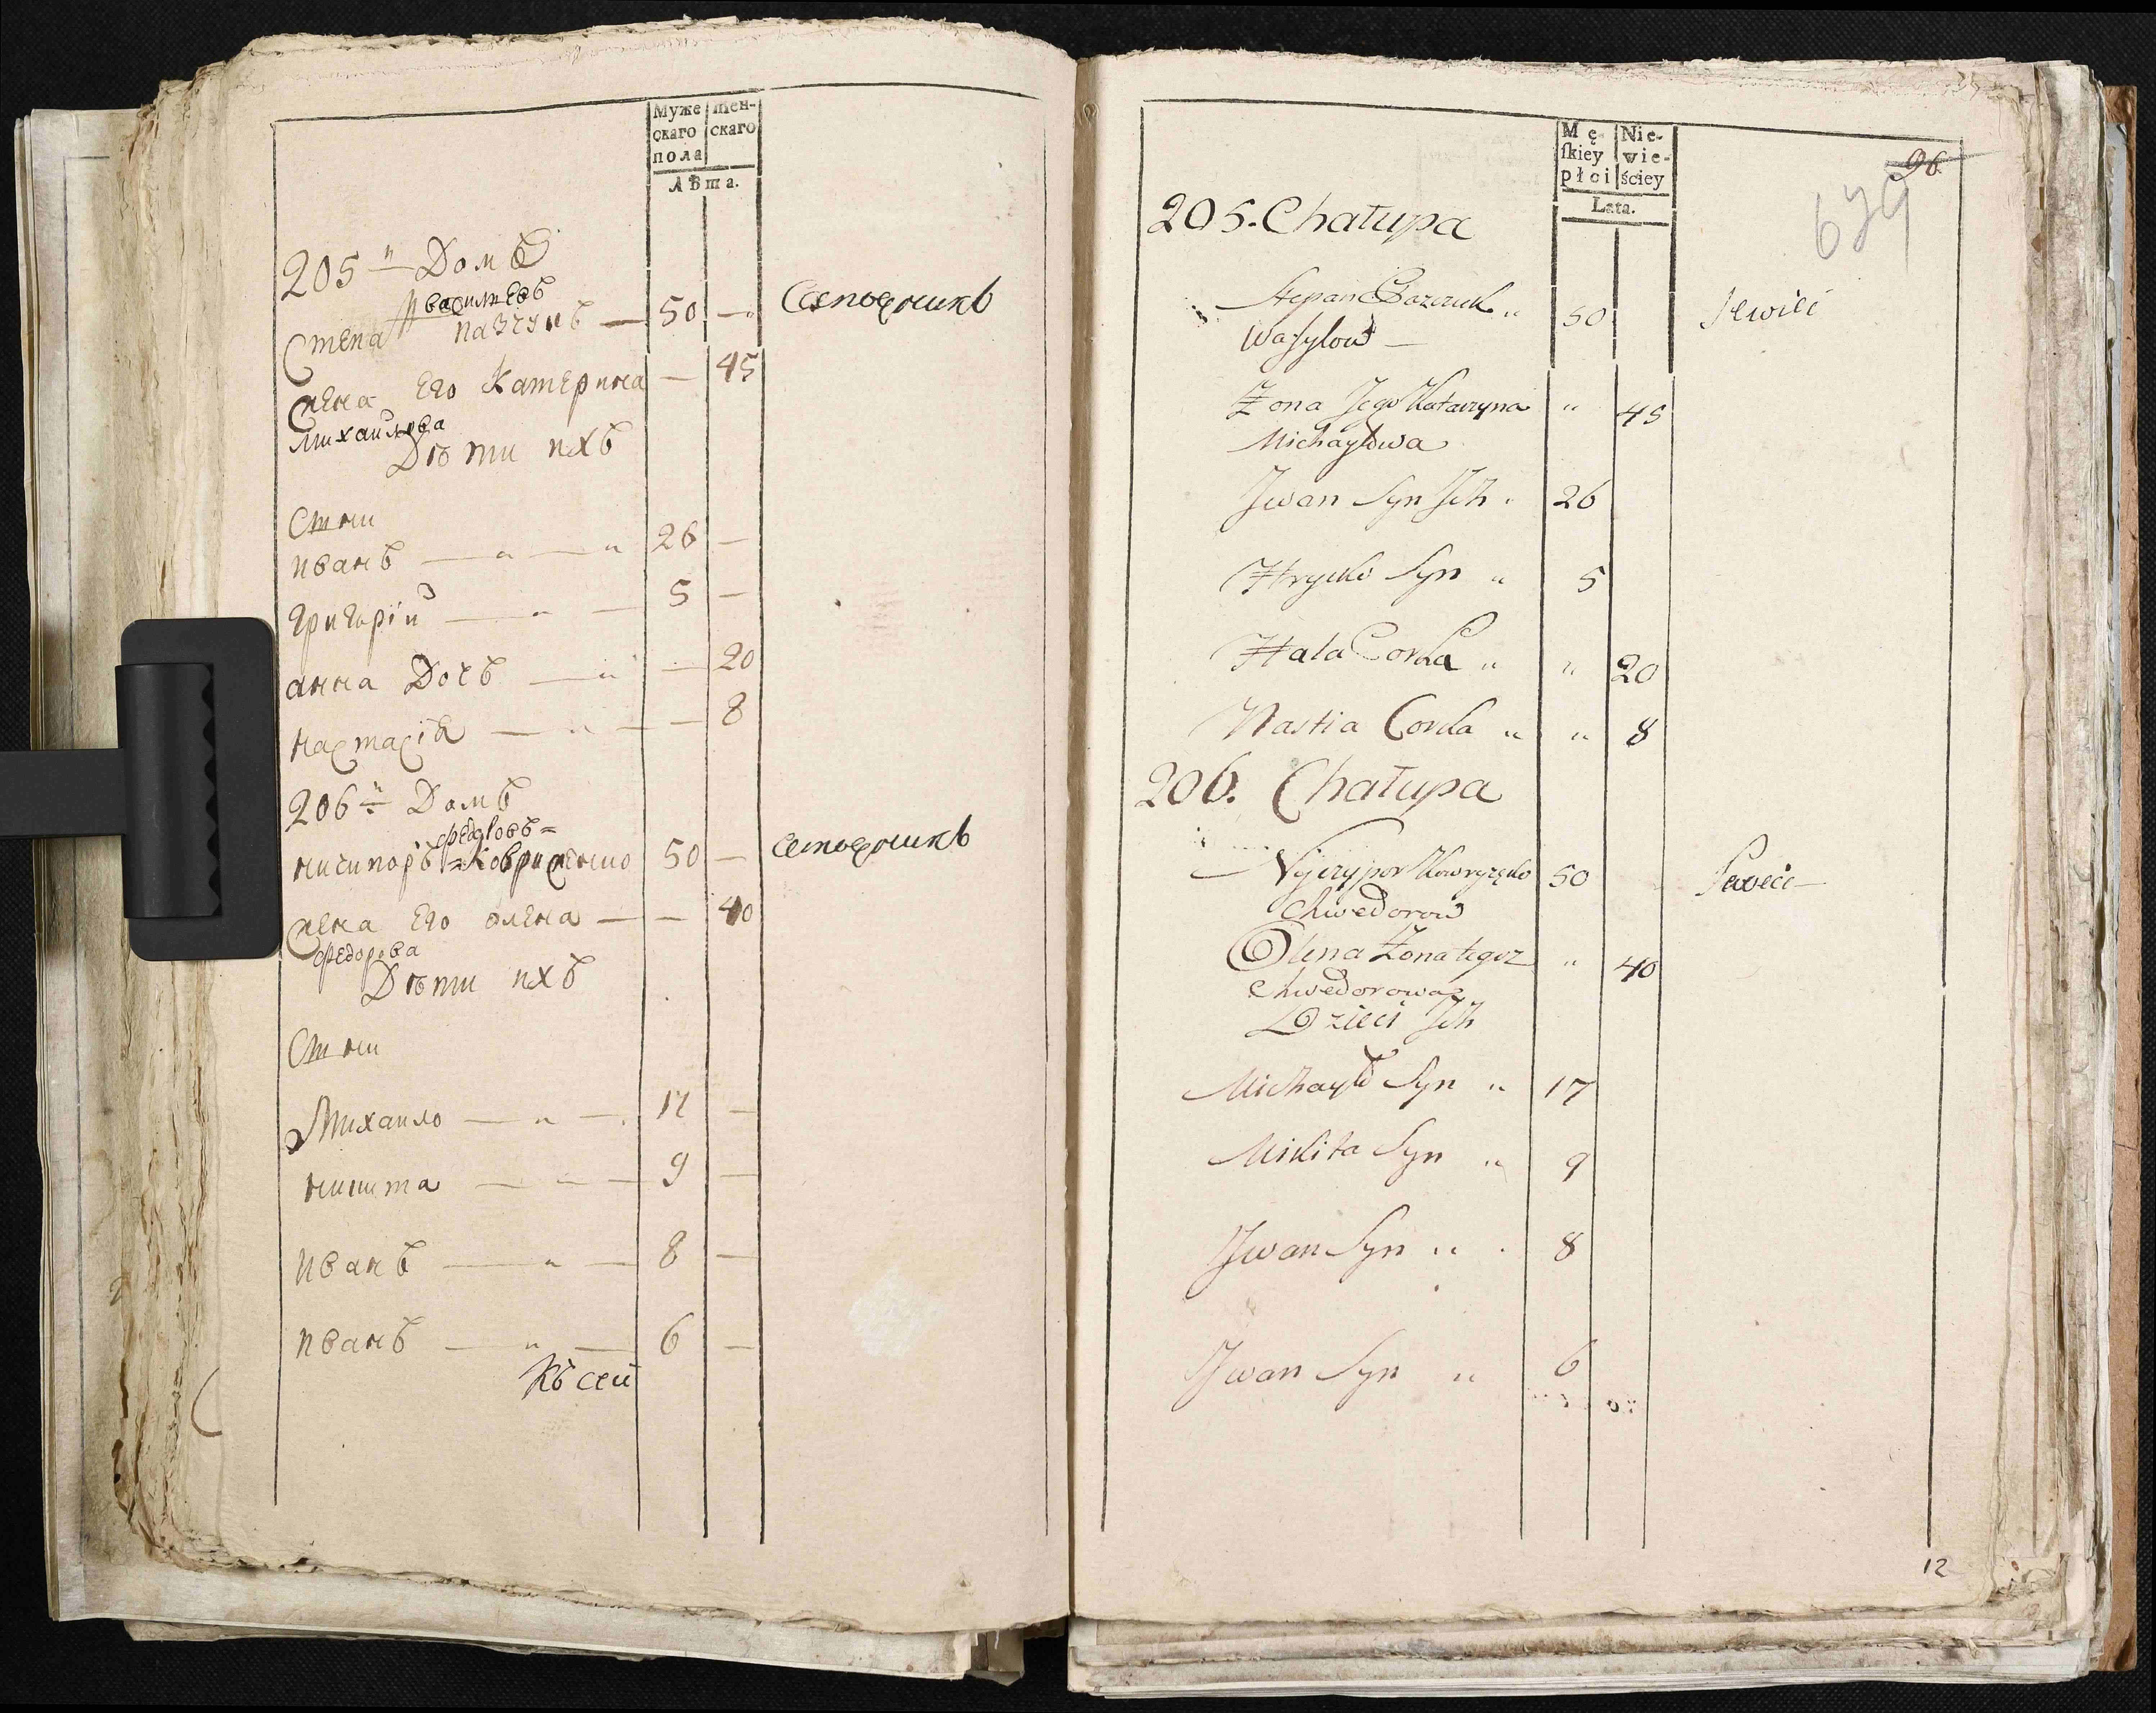 Муже женскаго
скаго
пола
Лѣта.
205й Домъ
василевъ
Степанъ пазчукъ — 50 — Сапожникъ
Жена Его Катерина — 45
михайлова
Дѣти ихъ
Сыны
иванъ — „ — „ 26 —
григорій — „ — 5 —
анна Дочь — „ — 20
настасія — „ — — 8
206й Домъ
федоровъ =
ничипоръ = Ковриженко 50 — сапожникъ
Жена Его олена — — 40
федорова
Дѣти ихъ
Сыны
Михаило — „ — 17 —
никита — „ — 9 —
иванъ — „ — 8 —
иванъ — „ — 6 —
Къ сей
Mę- Nie-
ſkiey wie-
płci ściey
Lata.
96
679
205. Chałupa
Stepan Pazczuk „ 50 Szwiec
Wasylow —
Żona Jego Katarzyna „ 45
Michayłowa
Jwan Syn Jch „ 26
Hrycko Syn „ 5
Hala Corka „ „ 20
Nastia Corka „ „ 8
206. Chałupa
Nyczypor Kowryzęko 50 Szwiec —
Chwedorow
Olena Żona tegoż „ 40
Chwedorowa
Dzieci Jch
Michayło Syn „ 17
Mikita Syn „ 9
Jwan Syn „ 8
Jwan Syn „ 6
12